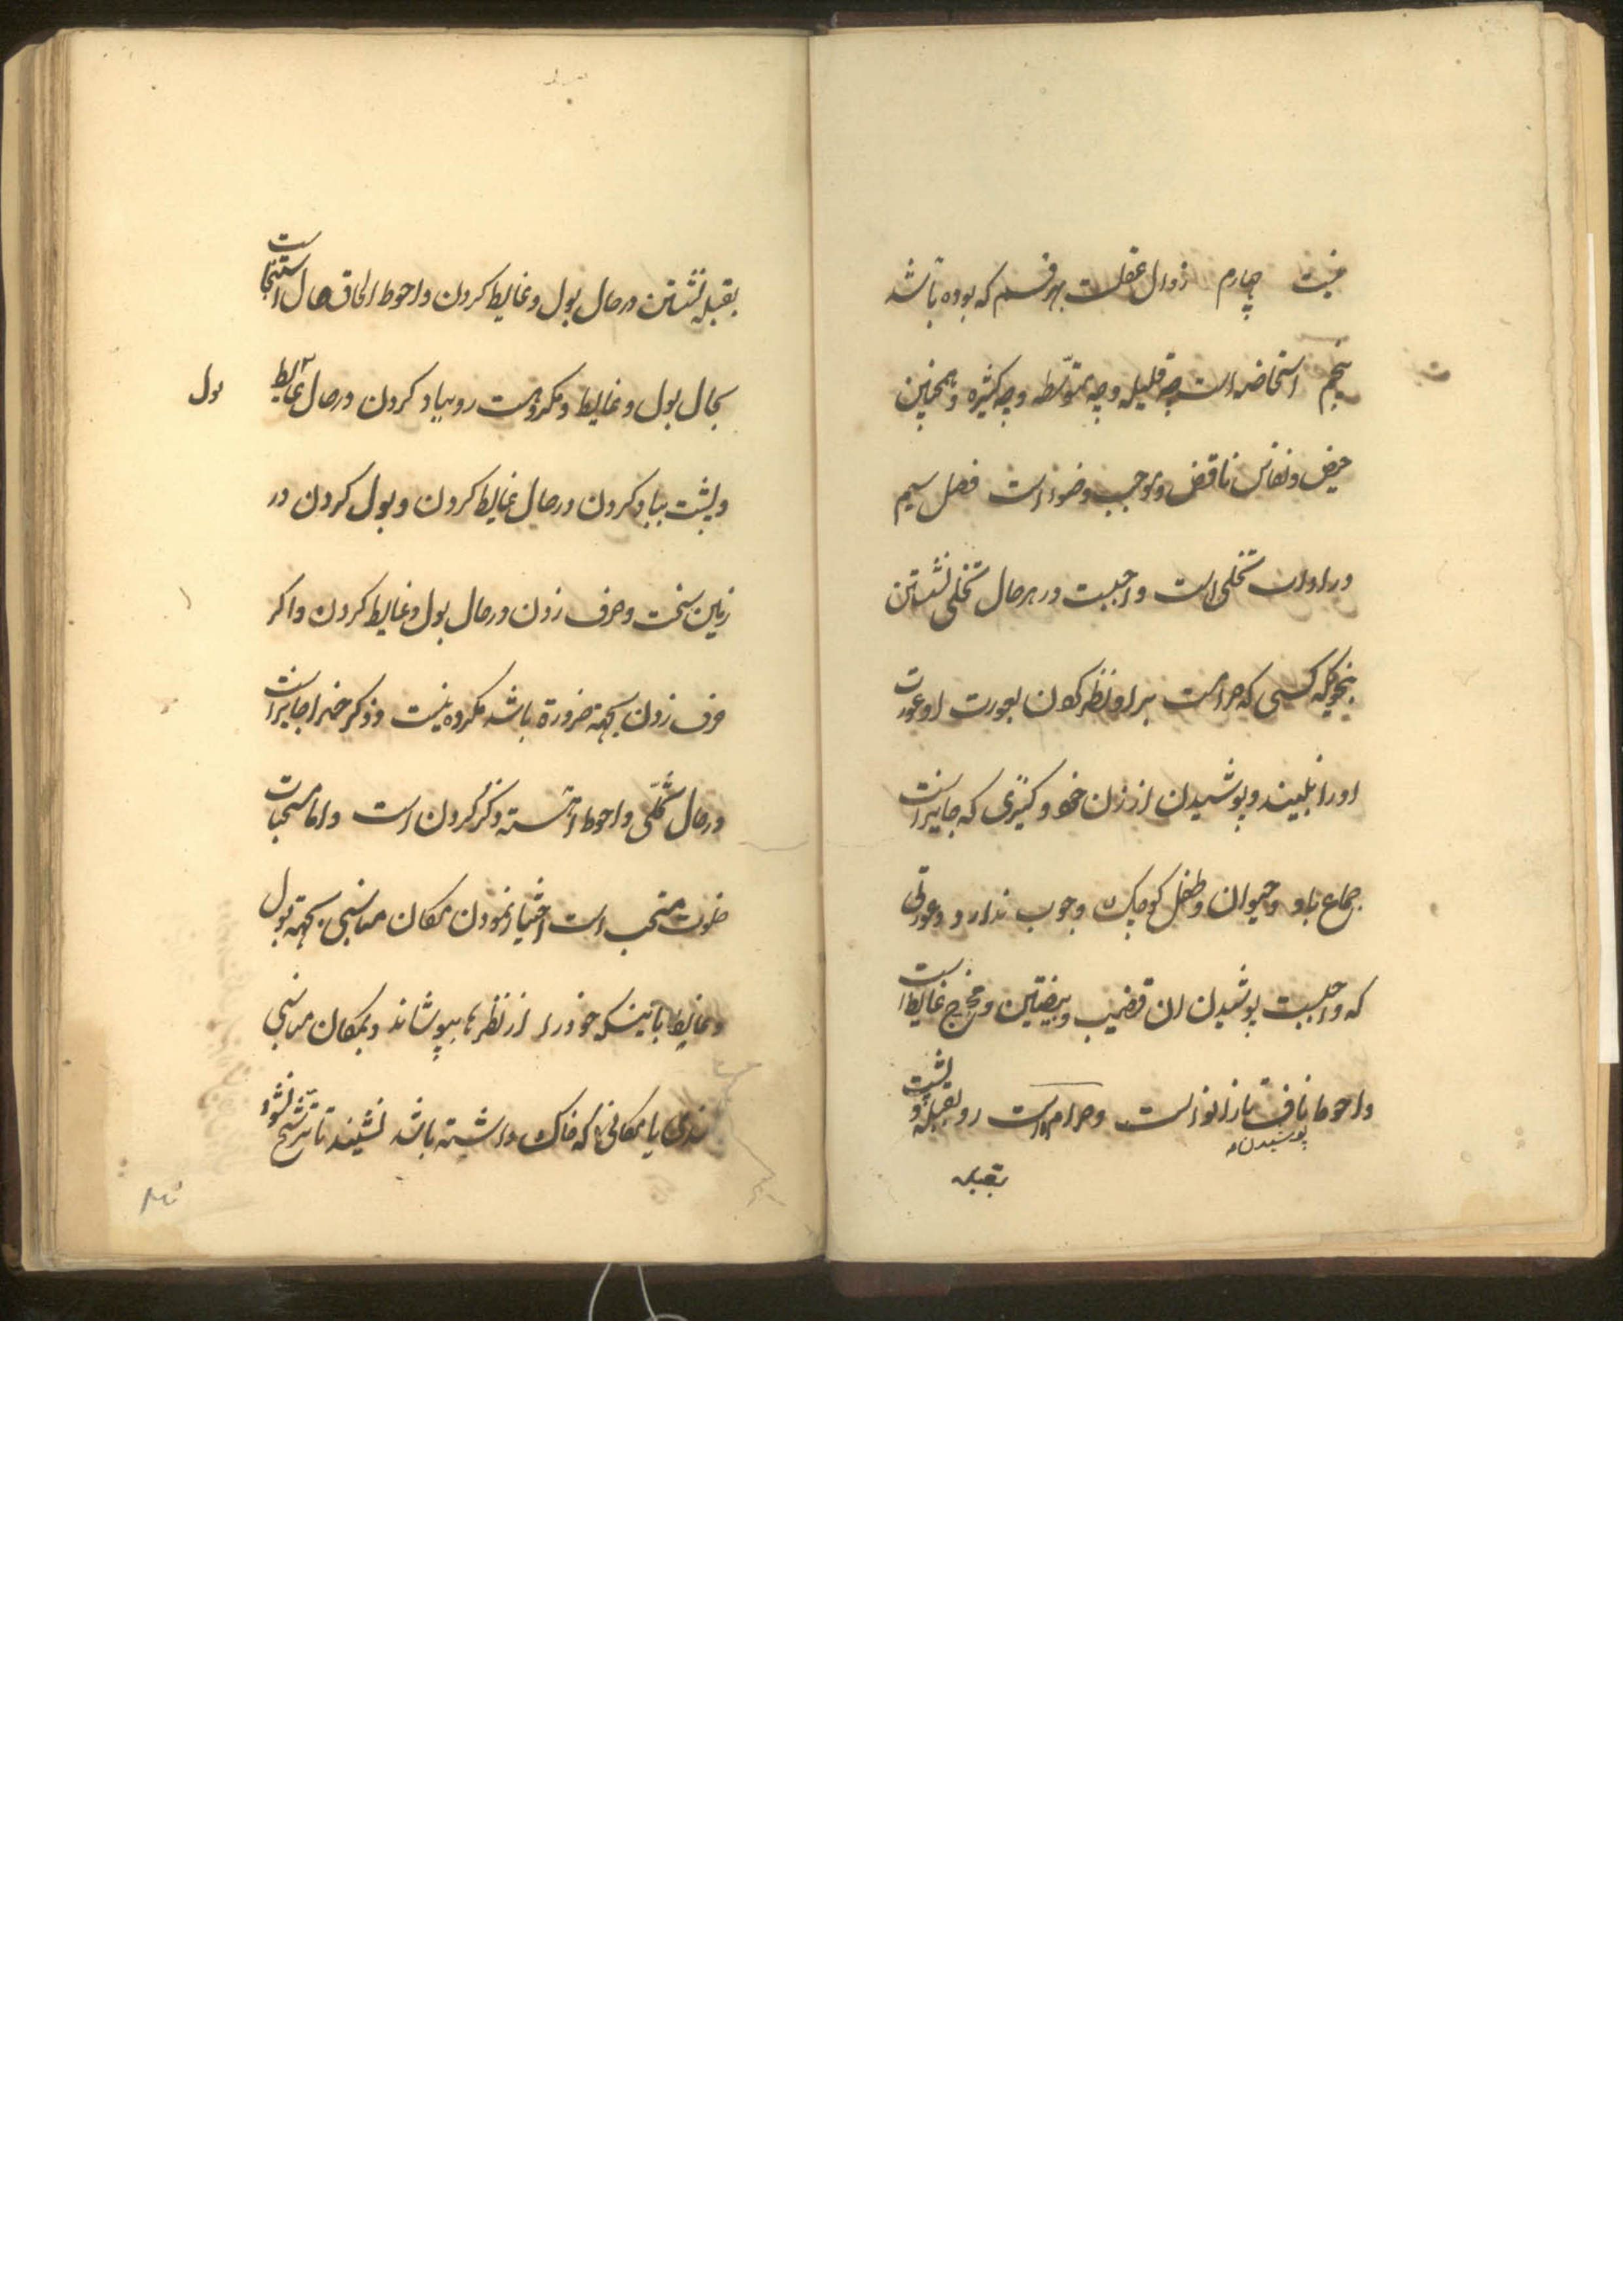 نیست چهارم زوال عقلست بهر قسم که بوده باشد
پنجم استحاضه است چه قلیله و چه متوسّطه و چه کثیره و همچنین
حیض و نفاس ناقض و موجب وضوء است فصل سیم
در اداب تخلی است واجبست در هر حال تخلی نشستن
بنحویکه کسی که حرامست بر او نظر کردن بعورت او عورت
او را نبیند و پوشیدن از زن خود و کنیزی که جایز است
جماع باو و حیوان و طفل کوچک وجوب ندارد و عورتی
که واجبست پوشیدن ان قضیب و بیضتین و مخرج غایط است
و احوط ناف تا زانو است و حرام است رو بقبله و پشت
پوشیدن
بقبله
بقبله نشستن در حال بول و غایط کردن و احوط الحاق حال استنجا است
بحال بول و غایط و مکروهست رو بباد کردن در حال غایط
بول
و پشت بباد کردن در حال غایط کردن و بول کردن در
زمین سخت و حرف زدن در حال بول و غایط کردن و اکر
حرف زدن بجهة ضرورة باشد مکروه نیست و ذکر خدا جایز است
در حال تخلّی و احوط اهسته ذکر کردن است و اما مستحبات
خلوت مستحب است اختیار نمودن مکان مناسبی بجهة بول
و غایط باینکه خود را از نظرها بپوشاند و بمکان مناسبی
بلندی یا مکانی که خاک داشته باشد نشیند تا ترشّح نشود